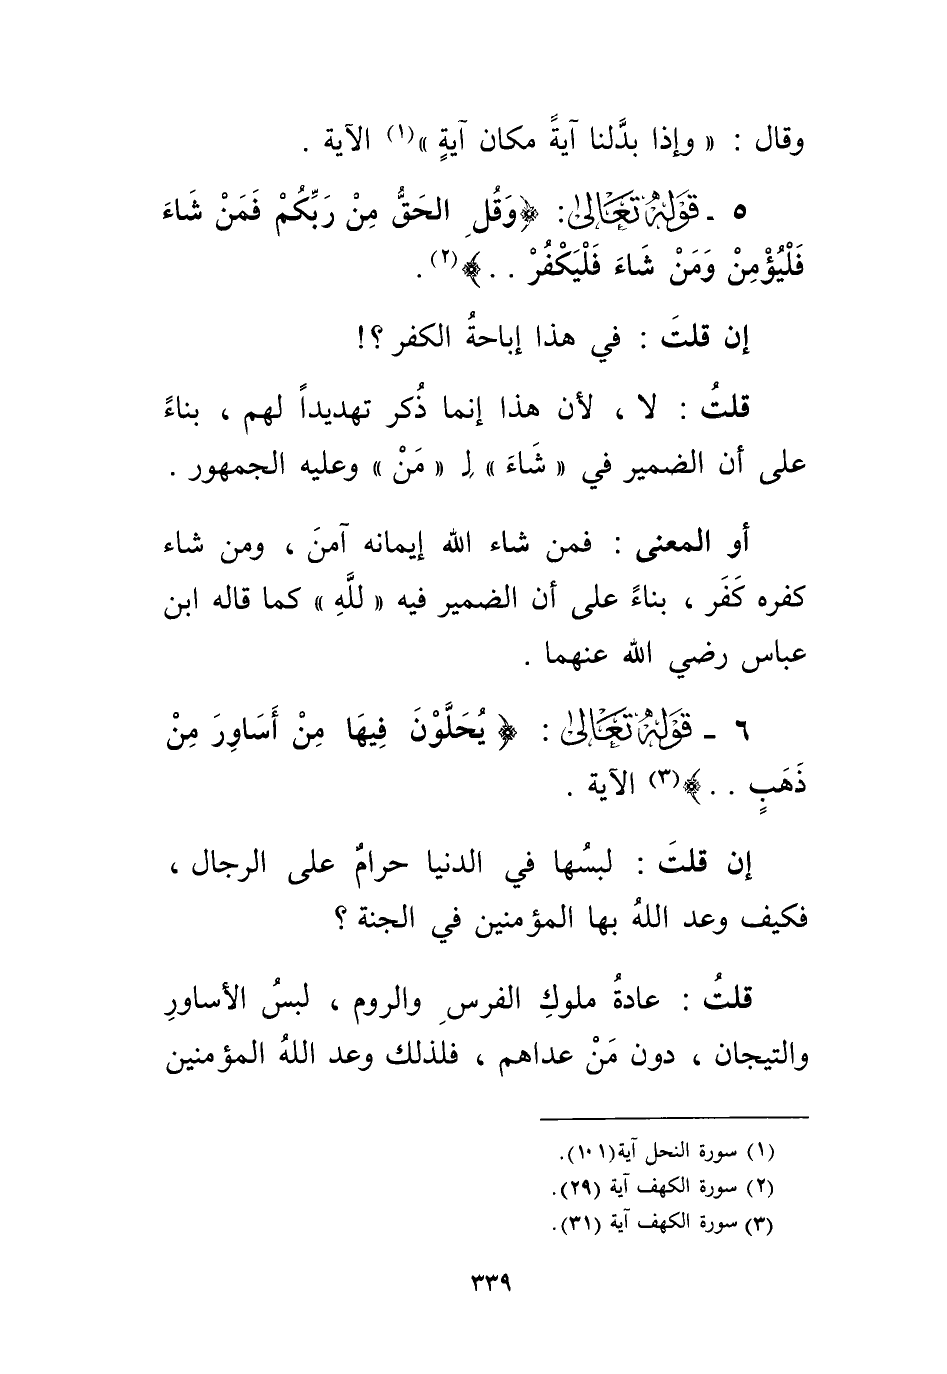 وقال : « وإذا بدَّلنا آيةً مكان آيةٍ »(١) الآية .
٥ ـ قَوْلُهُ تَعَالىٰ: ﴿وَقُلِ الحَقُّ مِنْ رَبِّكُمْ فَمَنْ شَاءَ
فَلْيُؤْمِنْ وَمَنْ شَاءَ فَلْيَكْفُرْ . .﴾(٢) .
إن قلتَ : في هذا إباحةُ الكفر ؟!
قلتُ : لا ، لأن هذا إنما ذُكر تهديداً لهم ، بناءً
على أن الضمير في « شَاءَ » لِـ « مَنْ » وعليه الجمهور .
أو المعنى : فمن شاء الله إيمانه آمنَ ، ومن شاء
كفره كَفَر ، بناءً على أن الضمير فيه « للَّهِ » كما قاله ابن
عباس رضي الله عنهما .
٦ ـ قَوْلُهُ تَعَالىٰ : ﴿ يُحَلَّوْنَ فِيهَا مِنْ أَسَاوِرَ مِنْ
ذَهَبٍ . .﴾(٣) الآية .
إن قلتَ : لبسُها في الدنيا حرامٌ على الرجال ،
فكيف وعد اللهُ بها المؤمنين في الجنة ؟
قلتُ : عادةُ ملوكِ الفرسِ والروم ، لبسُ الأساورِ
والتيجان ، دون مَنْ عداهم ، فلذلك وعد اللهُ المؤمنين
(١) سورة النحل آية(١٠١).
(٢) سورة الكهف آية (٢٩).
(٣) سورة الكهف آية (٣١).
٣٣٩